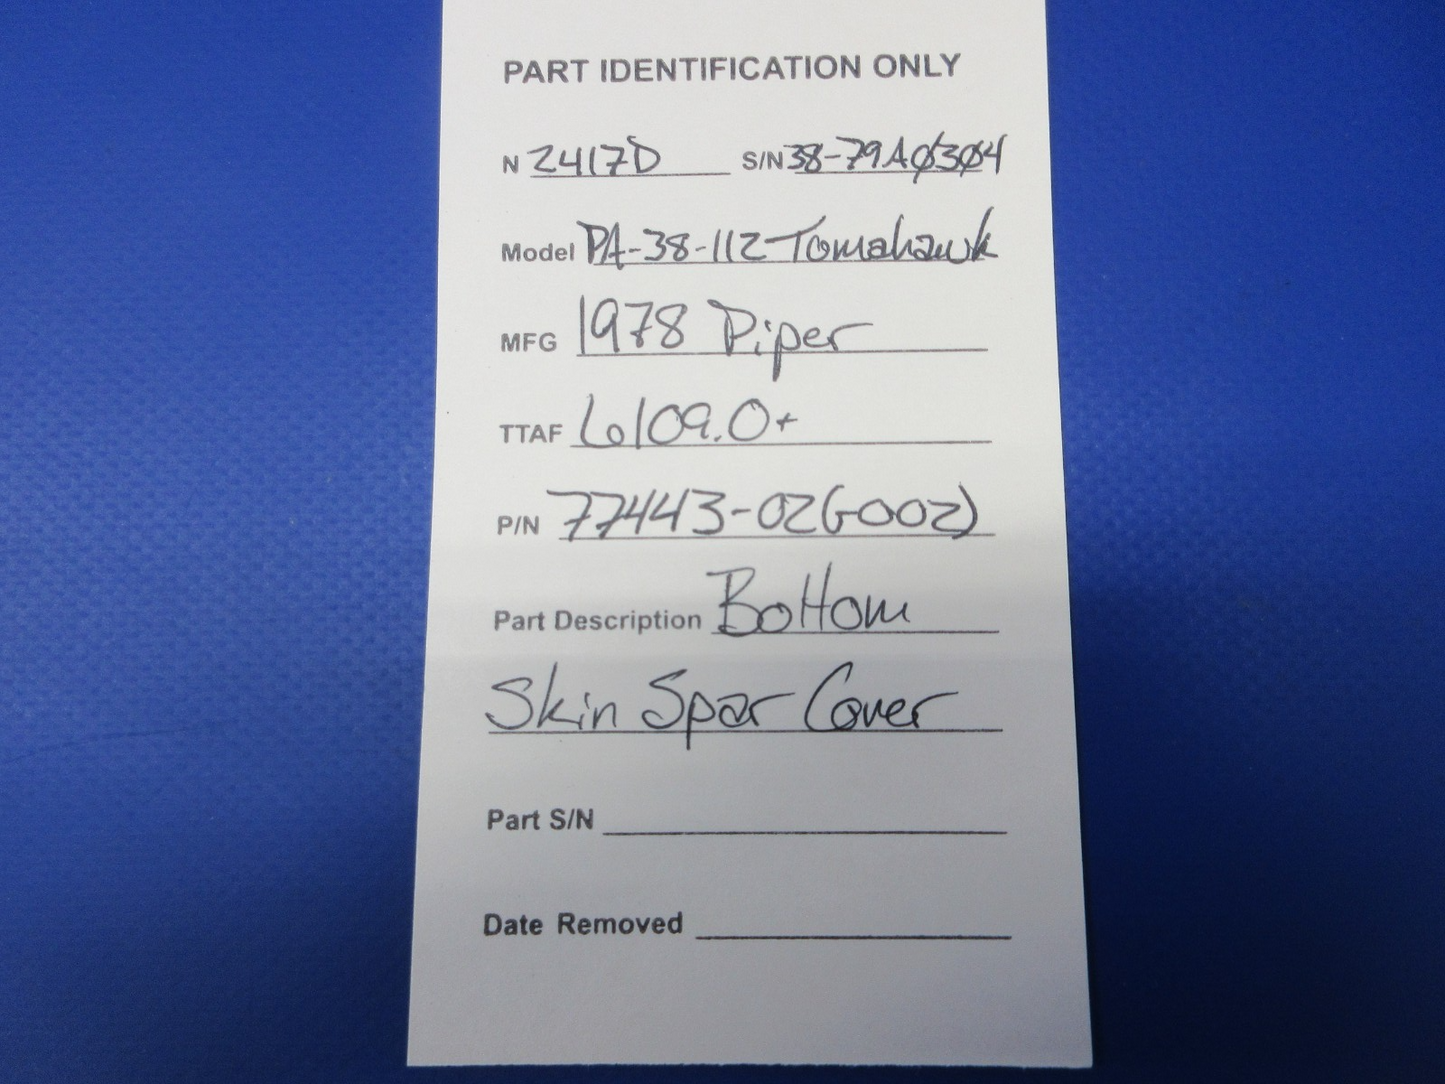 PART IDENTIFICATION ONLY
N 2417D S/N 38-79A0304
Model PA-38-112 Tomahawk
MFG 1978 Piper
TTAF 6109.0+
P/N 77443-02(-002)
Part Description Bottom
Skin Spar Cover
Part S/N
Date Removed